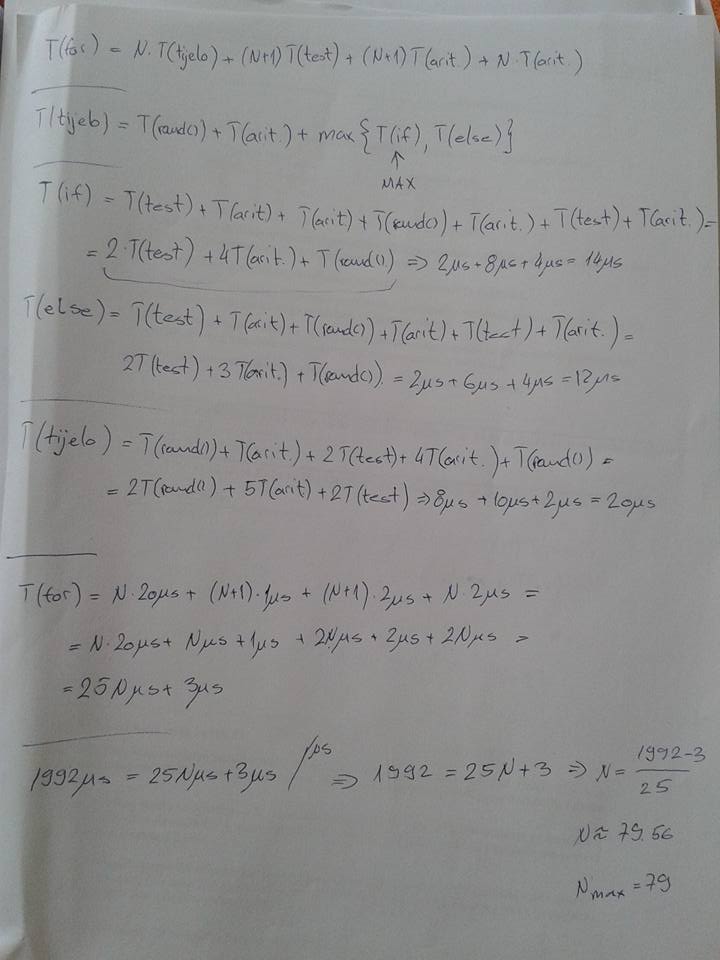 T(for) = N·T(tijelo) + (N+1)T(test) + (N+1)T(arit.) + N·T(arit.)
T(tijelo) = T(rand()) + T(arit.) + max{T(if), T(else)}
↑
MAX
T(if) = T(test) + T(arit) + T(arit) + T(rand()) + T(arit.) + T(test) + T(arit.) =
= 2·T(test) + 4T(arit.) + T(rand()) ⇒ 2μs + 8μs + 4μs = 14μs
T(else) = T(test) + T(arit) + T(rand()) + T(arit) + T(test) + T(arit.) =
2T(test) + 3T(arit.) + T(rand()) = 2μs + 6μs + 4μs = 12μs
T(tijelo) = T(rand()) + T(arit.) + 2T(test) + 4T(arit.) + T(rand()) =
= 2T(rand()) + 5T(arit) + 2T(test) ⇒ 8μs + 10μs + 2μs = 20μs
T(for) = N·20μs + (N+1)·1μs + (N+1)·2μs + N·2μs =
= N·20μs + Nμs + 1μs + 2Nμs + 2μs + 2Nμs =
= 25Nμs + 3μs
1992μs = 25Nμs + 3μs /μs ⇒ 1992 = 25N + 3 ⇒ N = (1992-3)/25
N ≈ 79.56
Nmax = 79